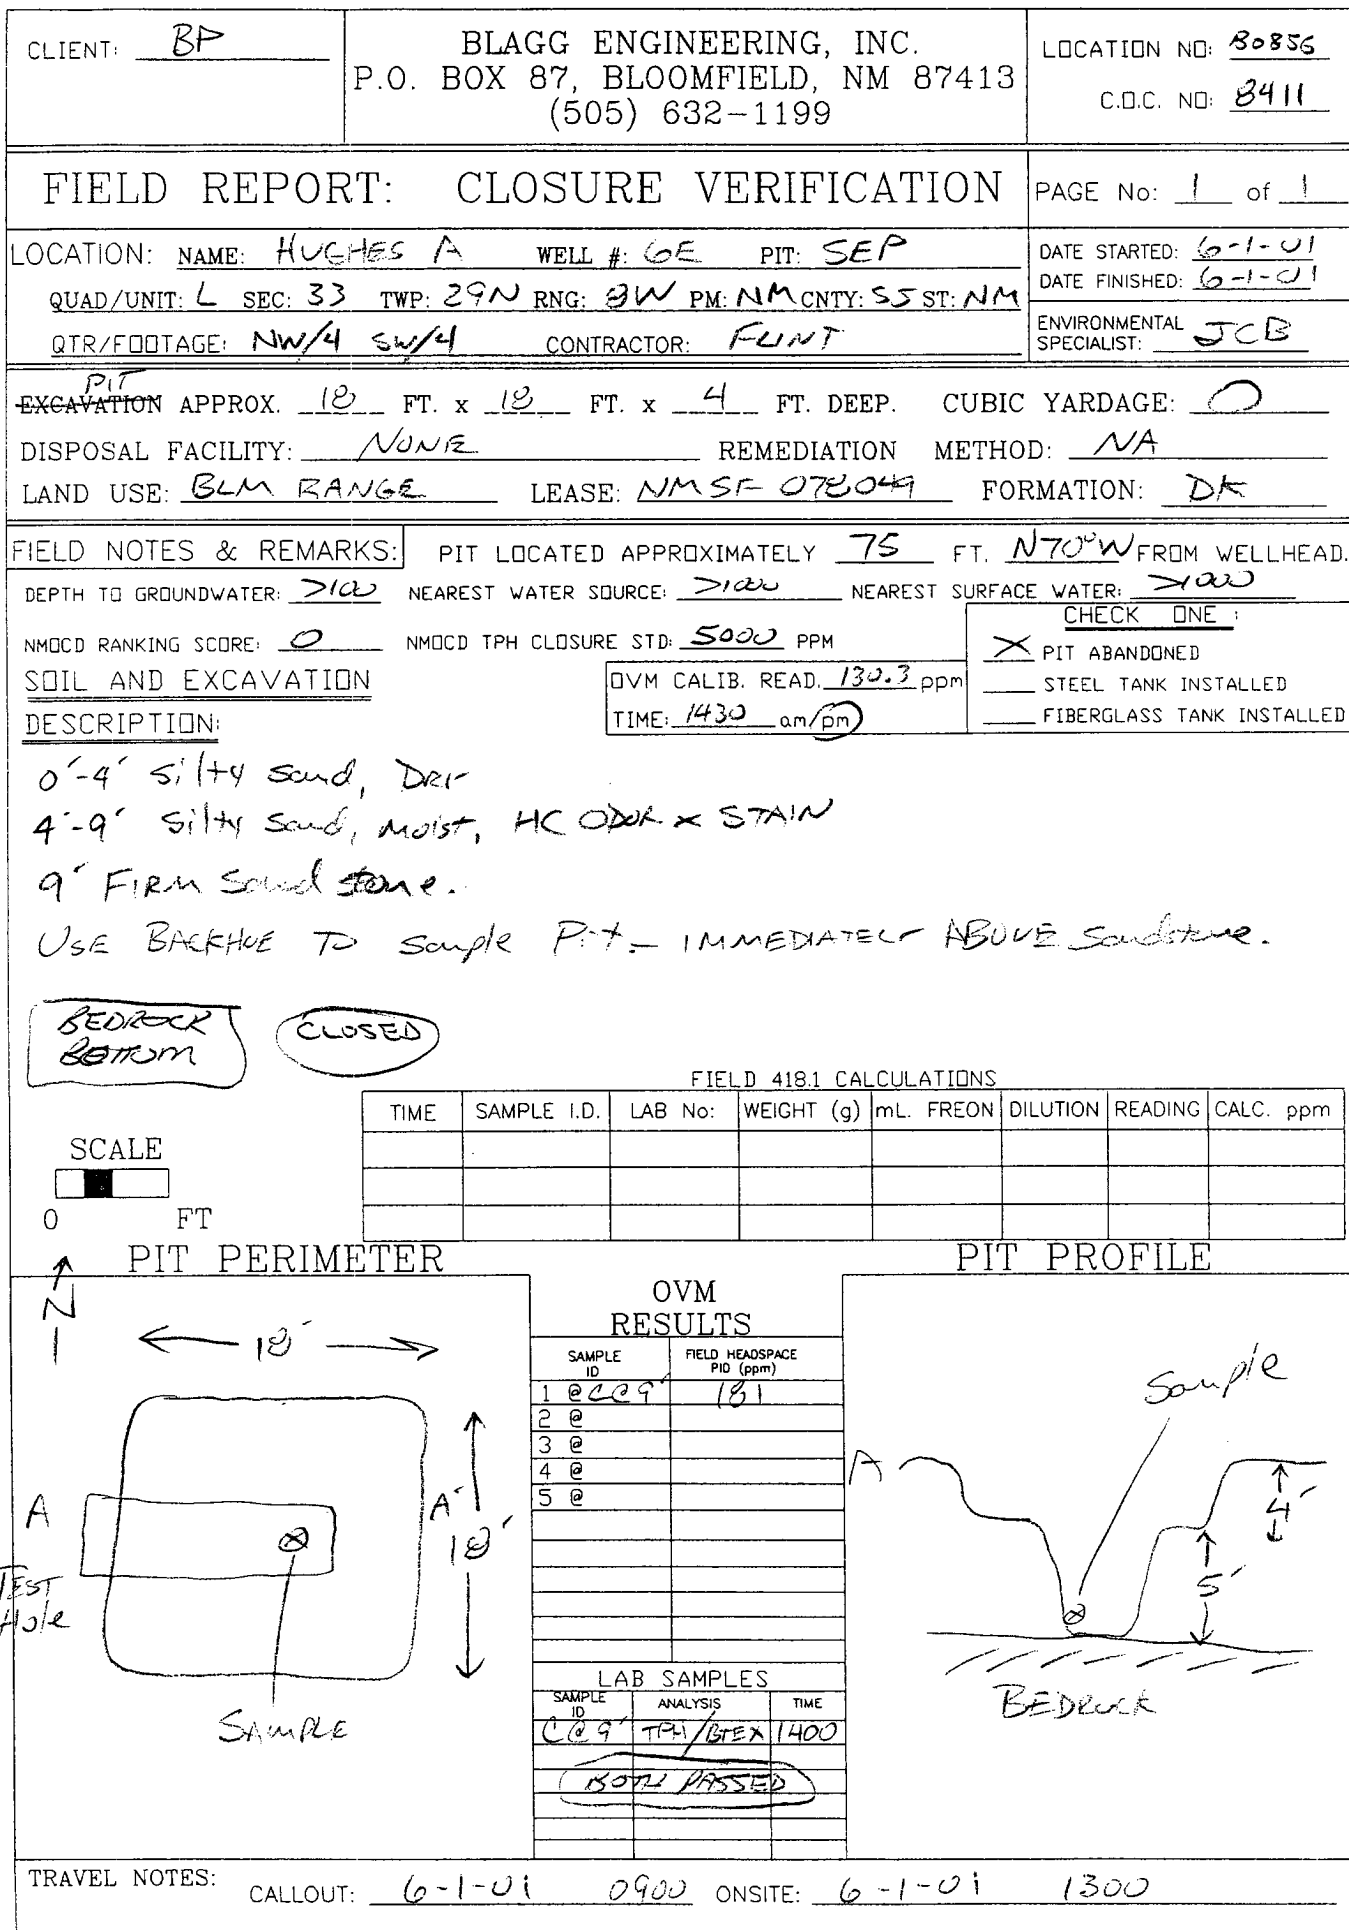 CLIENT: BP
BLAGG ENGINEERING, INC.
P.O. BOX 87, BLOOMFIELD, NM 87413
(505) 632-1199
LOCATION NO: B0856
C.O.C. NO: 8411
FIELD REPORT: CLOSURE VERIFICATION
PAGE No: 1 of 1
LOCATION: NAME: HUGHES A WELL #: 6E PIT: SEP
QUAD/UNIT: L SEC: 33 TWP: 29N RNG: 8W PM: NM CNTY: SJ ST: NM
QTR/FOOTAGE: NW/4 SW/4 CONTRACTOR: FLINT
DATE STARTED: 6-1-01
DATE FINISHED: 6-1-01
ENVIRONMENTAL
SPECIALIST: JCB
PIT
EXCAVATION APPROX. 18 FT. x 18 FT. x 4 FT. DEEP. CUBIC YARDAGE: 0
DISPOSAL FACILITY: NONE REMEDIATION METHOD: NA
LAND USE: BLM RANGE LEASE: NMSF 078049 FORMATION: DK
FIELD NOTES & REMARKS: PIT LOCATED APPROXIMATELY 75 FT. N70°W FROM WELLHEAD.
DEPTH TO GROUNDWATER: >100 NEAREST WATER SOURCE: >1000 NEAREST SURFACE WATER: >1000
NMOCD RANKING SCORE: 0 NMOCD TPH CLOSURE STD: 5000 PPM
CHECK ONE :
X PIT ABANDONED
STEEL TANK INSTALLED
FIBERGLASS TANK INSTALLED
SOIL AND EXCAVATION
DESCRIPTION:
OVM CALIB. READ. 130.3 ppm
TIME: 1430 am/pm
0'-4' Silty Sand, DRY
4'-9' Silty Sand, MOIST, HC ODOR & STAIN
9' FIRM Sandstone.
USE BACKHOE TO Sample Pit - IMMEDIATELY ABOVE Sandstone.
BEDROCK
BOTTOM
CLOSED
FIELD 418.1 CALCULATIONS
TIME SAMPLE I.D. LAB No: WEIGHT (g) mL. FREON DILUTION READING CALC. ppm
SCALE
0 FT
N
PIT PERIMETER
18'
A
A'
18'
TEST
Hole
SAMPLE
OVM
RESULTS
SAMPLE
ID
FIELD HEADSPACE
PID (ppm)
1 @ C@9' 181
2 @
3 @
4 @
5 @
LAB SAMPLES
SAMPLE
ID
ANALYSIS
TIME
C@9' TPH/BTEX 1400
BOTH PASSED
PIT PROFILE
Sample
A
4'
5'
BEDROCK
TRAVEL NOTES: CALLOUT: 6-1-01 0900 ONSITE: 6-1-01 1300